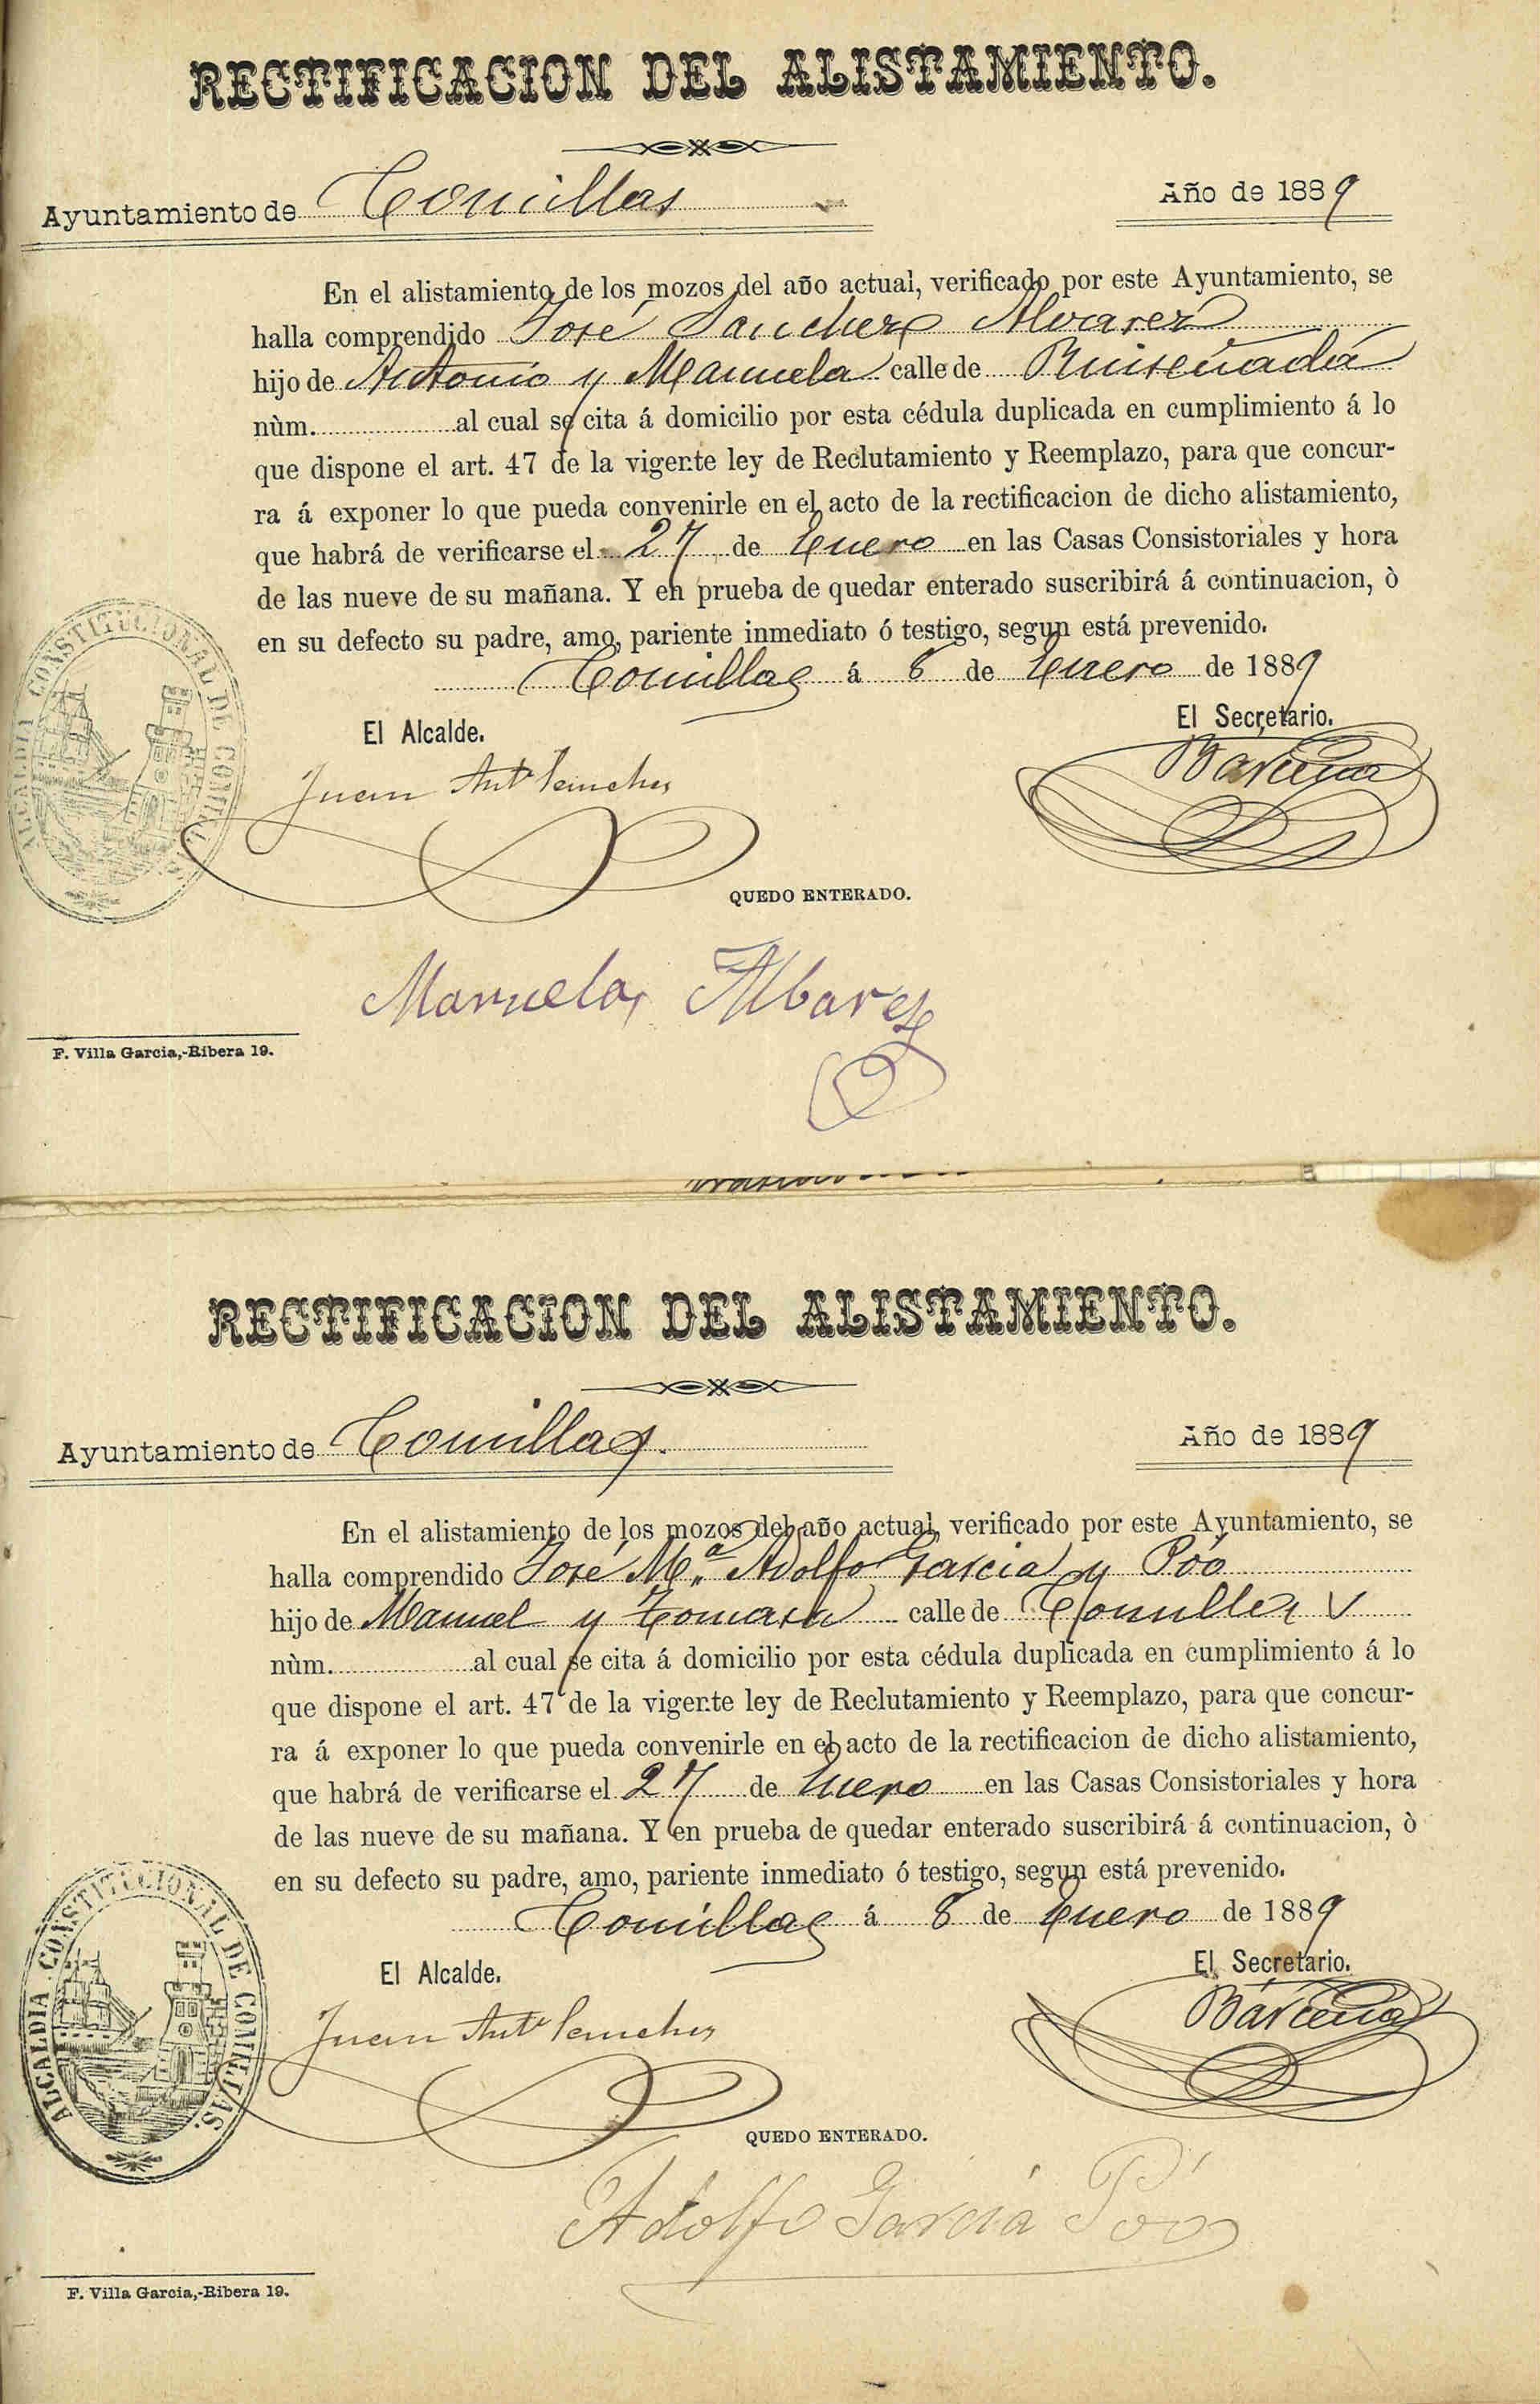 RECTIFICACION DEL ALISTAMIENTO.
Ayuntamiento de Comillas Año de 1889
En el alistamiento de los mozos del año actual, verificado por este Ayuntamiento, se
halla comprendido José Sanchez Alvarez
hijo de Antonio y Manuela calle de Ruiseñada
nùm. al cual se cita á domicilio por esta cédula duplicada en cumplimiento á lo
que dispone el art. 47 de la vigente ley de Reclutamiento y Reemplazo, para que concur-
ra á exponer lo que pueda convenirle en el acto de la rectificacion de dicho alistamiento,
que habrá de verificarse el 27 de Enero en las Casas Consistoriales y hora
de las nueve de su mañana. Y en prueba de quedar enterado suscribirá á continuacion, ò
en su defecto su padre, amo, pariente inmediato ó testigo, segun está prevenido.
Comillas á 8 de Enero de 1889
El Alcalde. El Secretario.
Juan Antº Sanchez Bárcena
ALCALDIA CONSTITUCIONAL DE COMILLAS.
QUEDO ENTERADO.
Manuela Albarez
F. Villa Garcia,-Ribera 19.
RECTIFICACION DEL ALISTAMIENTO.
Ayuntamiento de Comillas. Año de 1889
En el alistamiento de los mozos del año actual, verificado por este Ayuntamiento, se
halla comprendido José M.ª Adolfo Garcia y Póo
hijo de Manuel y Tomasa calle de Comillas
nùm. al cual se cita á domicilio por esta cédula duplicada en cumplimiento á lo
que dispone el art. 47 de la vigente ley de Reclutamiento y Reemplazo, para que concur-
ra á exponer lo que pueda convenirle en el acto de la rectificacion de dicho alistamiento,
que habrá de verificarse el 27 de Enero en las Casas Consistoriales y hora
de las nueve de su mañana. Y en prueba de quedar enterado suscribirá á continuacion, ò
en su defecto su padre, amo, pariente inmediato ó testigo, segun está prevenido.
Comillas á 8 de Enero de 1889
El Alcalde. El Secretario.
Juan Antº Sanchez Bárcena
ALCALDIA CONSTITUCIONAL DE COMILLAS.
QUEDO ENTERADO.
Adolfo Garcia Póo
F. Villa Garcia,-Ribera 19.